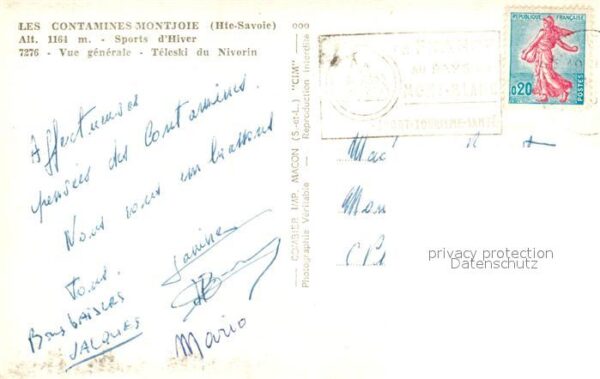 LES CONTAMINES-MONTJOIE (Hte-Savoie)
Alt. 1164 m. - Sports d'Hiver
7276 - Vue générale - Téleski du Nivorin
Affectueuses
pensées des Contamines.
Nous vous embrassons
Tous.
Janine
Bons baisers
JACQUES
Mario
COMBIER IMP. MACON (S.-et-L.) "CIM"
Photographie Véritable — Reproduction Interdite
AU PAYS
MONT-BLANC
REPUBLIQUE FRANÇAISE
0,20
POSTES
privacy protection
Datenschutz